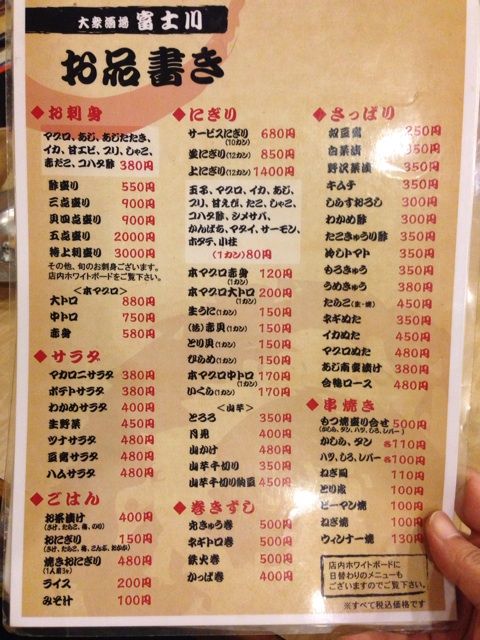 大衆酒場 富士川
お品書き
◆お刺身
マグロ、あじ、あじたたき、
イカ、甘エビ、ブリ、しゃこ、
赤だこ、コハダ酢 380円
酢盛り 550円
三点盛り 900円
貝四点盛り 900円
五点盛り 2000円
特上刺盛り 3000円
その他、旬のお刺身ございます。
店内ホワイトボードをご覧下さい。
<本マグロ>
大トロ 880円
中トロ 750円
赤身 580円
◆サラダ
マカロニサラダ 380円
ポテトサラダ 380円
わかめサラダ 400円
生野菜 450円
ツナサラダ 480円
豆腐サラダ 480円
ハムサラダ 480円
◆ごはん
お茶漬け 400円
(さけ、たらこ、梅、のり)
おにぎり 150円
(さけ、たらこ、梅、こんぶ、おかか)
焼きおにぎり 480円
(1人前3ヶ)
ライス 200円
みそ汁 100円
◆にぎり
サービスにぎり 680円
(10カン)
並にぎり(12カン) 850円
上にぎり(12カン) 1400円
玉子、マグロ、イカ、あじ、
ブリ、甘えび、たこ、しゃこ、
コハダ酢、シメサバ、
かんぱち、マダイ、サーモン、
ホタテ、小柱
(1カン)80円
本マグロ赤身 120円
(1カン)
本マグロ大トロ 200円
(1カン)
生うに(1カン) 150円
(活)赤貝(1カン) 150円
とり貝(1カン) 150円
ひらめ(1カン) 150円
本マグロ中トロ 170円
(1カン)
いくら(1カン) 170円
<山芋>
とろろ 350円
月見 400円
山かけ 480円
山芋千切り 350円
山芋千切り納豆 450円
◆巻きずし
穴きゅう巻 500円
ネギトロ巻 500円
鉄火巻 500円
かっぱ巻 400円
◆さっぱり
奴豆腐 250円
白菜漬 350円
野沢菜漬 350円
キムチ 350円
しらすおろし 300円
わかめ酢 300円
たこきゅうり酢 350円
冷しトマト 350円
もろきゅう 350円
うめきゅう 380円
たらこ(生・焼) 450円
ネギぬた 350円
イカぬた 450円
マグロぬた 480円
あじ南蛮漬け 380円
合鴨ロース 480円
◆串焼き
もつ焼盛り合せ 500円
(かしら、タン、ハツ、しろ、レバー)
かしら、タン 各110円
ハツ、しろ、レバー 各100円
ねぎ間 110円
とり皮 100円
ピーマン焼 100円
ねぎ焼 100円
ウィンナー焼 130円
店内ホワイトボードに
日替わりのメニューも
ございますのでご覧下さい。
※すべて税込価格です